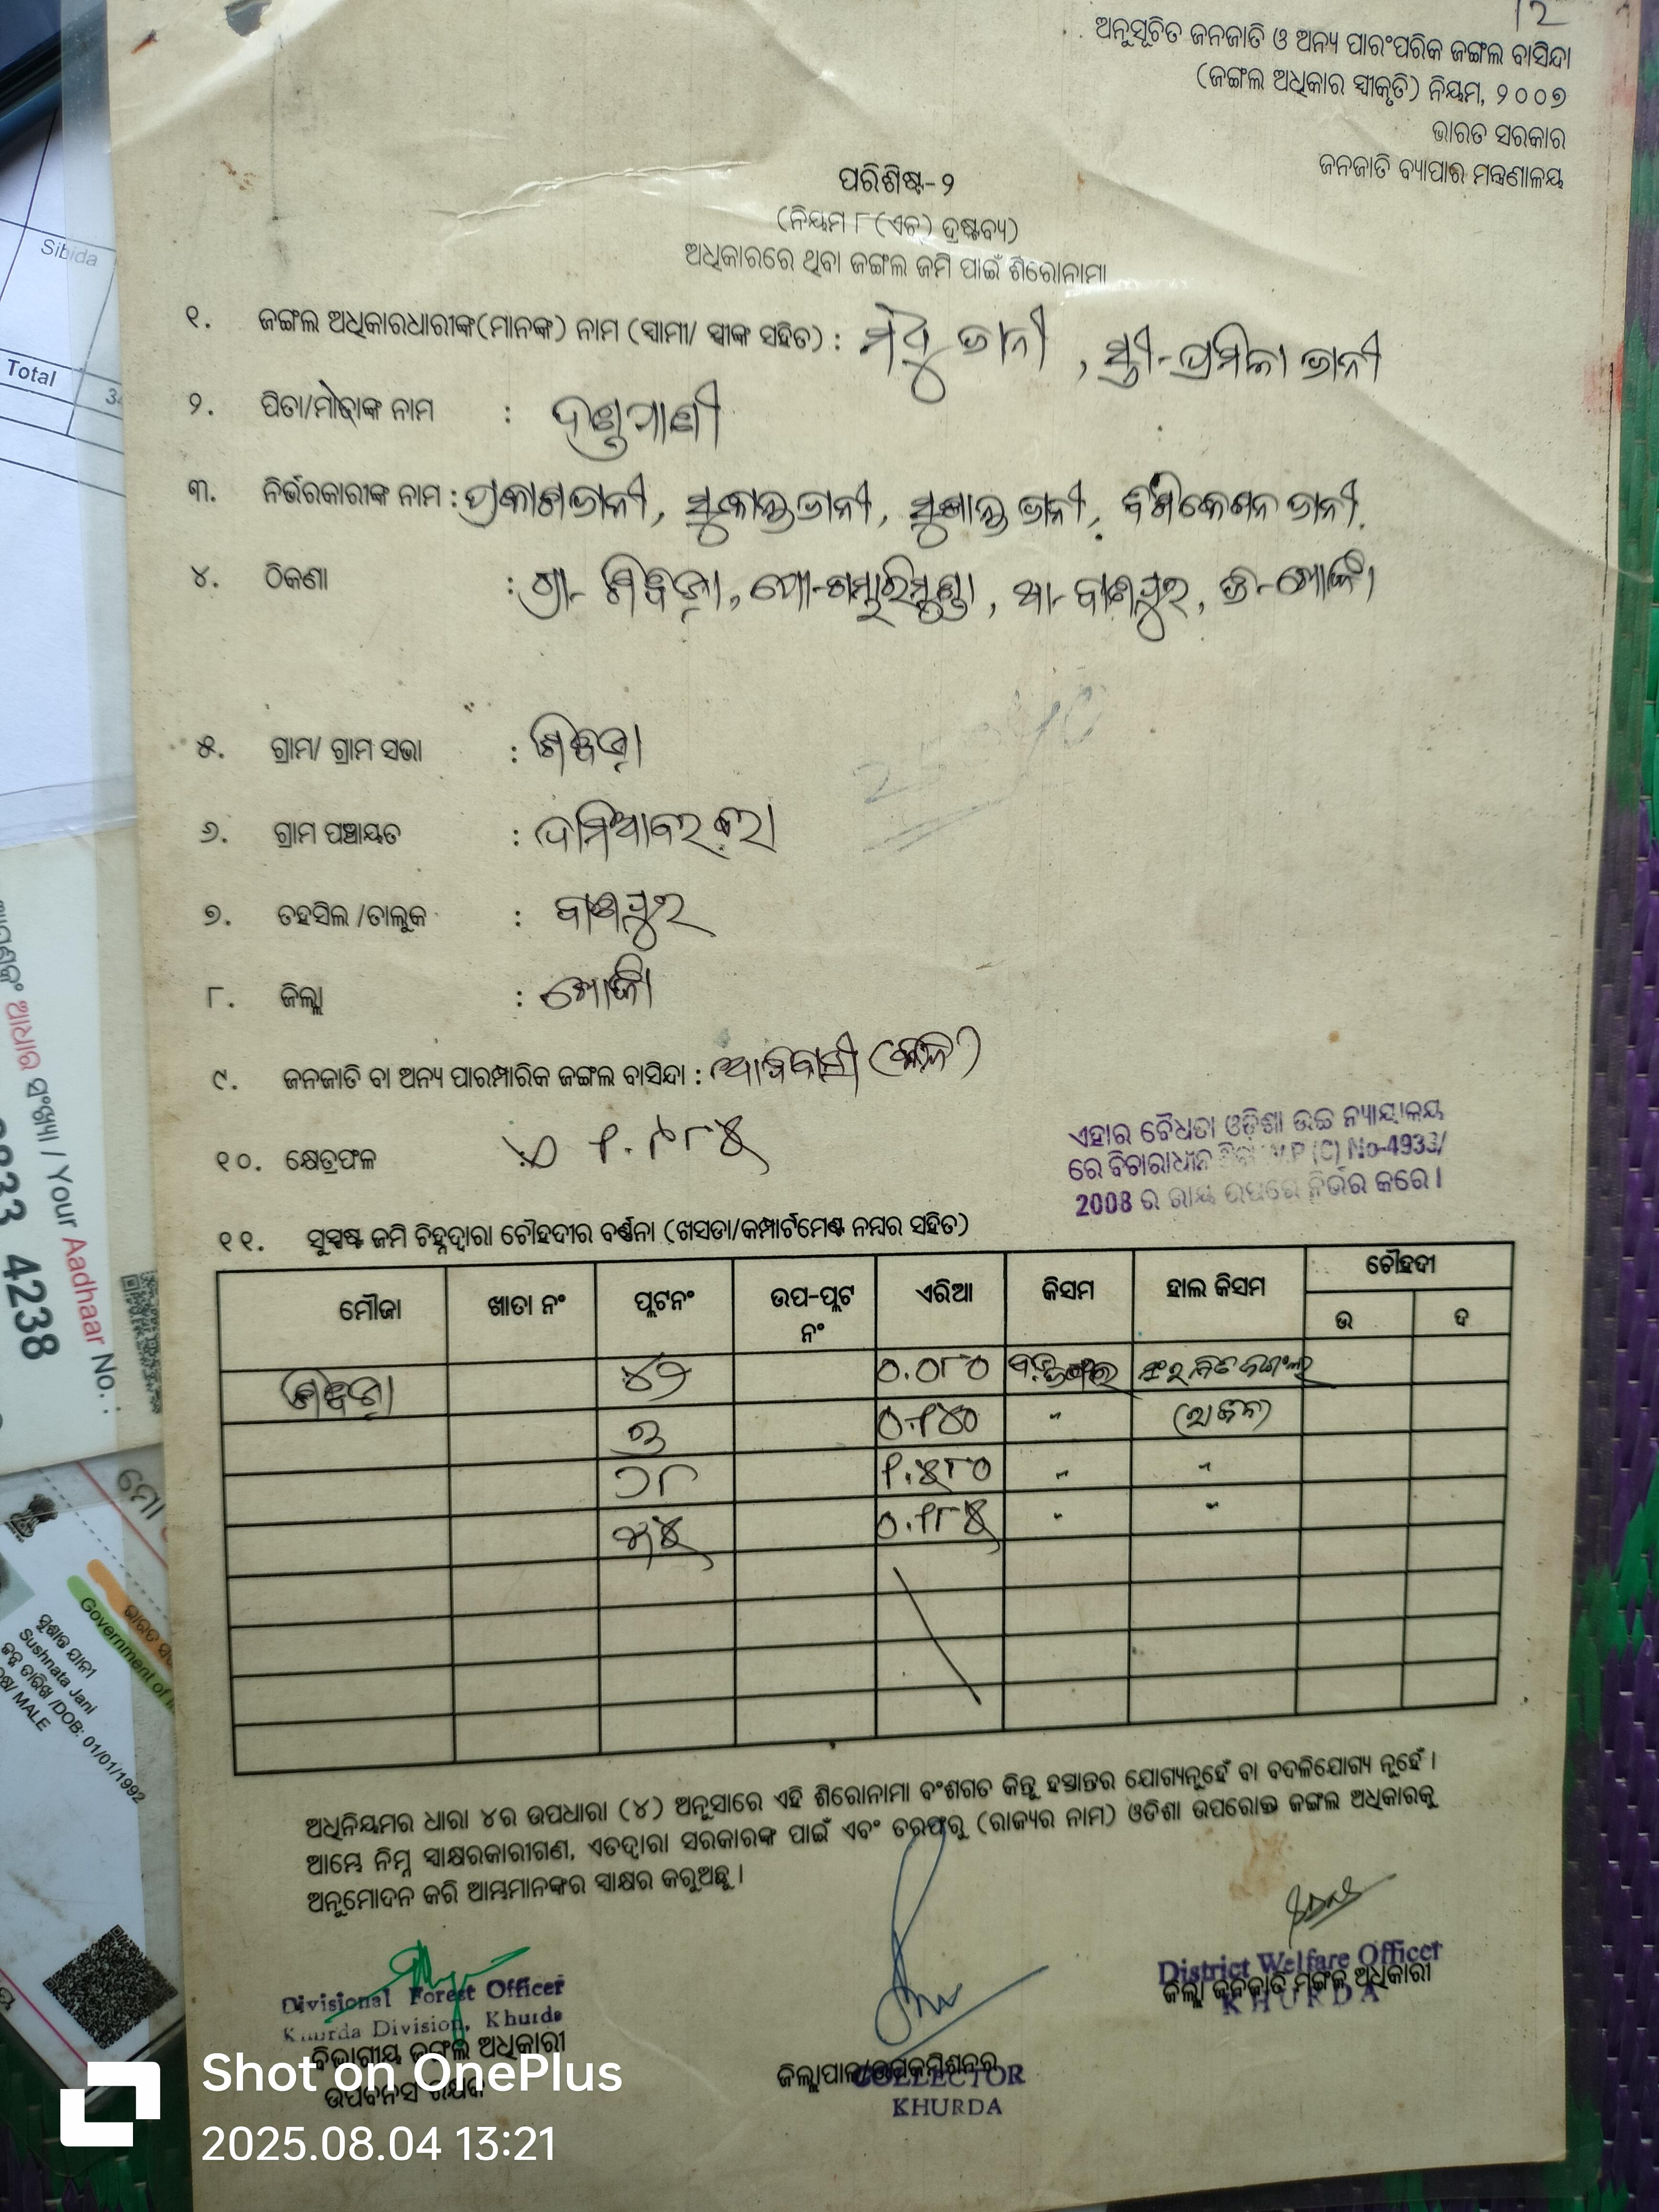 12
ଅନୁସୂଚିତ ଜନଜାତି ଓ ଅନ୍ୟ ପାରଂପରିକ ଜଙ୍ଗଲ ବାସିନ୍ଦା
(ଜଙ୍ଗଲ ଅଧିକାର ସ୍ୱୀକୃତି) ନିୟମ, ୨୦୦୭
ଭାରତ ସରକାର
ଜନଜାତି ବ୍ୟାପାର ମନ୍ତ୍ରଣାଳୟ
ପରିଶିଷ୍ଟ-୨
(ନିୟମ ୮(ଏଚ୍) ଦ୍ରଷ୍ଟବ୍ୟ)
ଅଧିକାରରେ ଥିବା ଜଙ୍ଗଲ ଜମି ପାଇଁ ଶିରୋନାମା
୧. ଜଙ୍ଗଲ ଅଧିକାରଧାରୀଙ୍କ(ମାନଙ୍କ) ନାମ (ସ୍ୱାମୀ/ ସ୍ତ୍ରୀଙ୍କ ସହିତ) : ମଧୁ ଜାନୀ, ସ୍ତ୍ରୀ-ପ୍ରମିଳା ଜାନୀ
୨. ପିତା/ମାତାଙ୍କ ନାମ :
୩. ନିର୍ଭରକାରୀଙ୍କ ନାମ : ପ୍ରକାଶ ଜାନୀ, ସୁକାନ୍ତ ଜାନୀ, ସୁଶାନ୍ତ ଜାନୀ, ଜାନୀ
୪. ଠିକଣା : ଗ୍ରା- ପୋ- ଥା- ବାଣପୁର, ଜି- ଖୋର୍ଦ୍ଧା
୫. ଗ୍ରାମ/ ଗ୍ରାମ ସଭା :
୬. ଗ୍ରାମ ପଞ୍ଚାୟତ :
୭. ତହସିଲ /ତାଲୁକ : ବାଣପୁର
୮. ଜିଲ୍ଲା : ଖୋର୍ଦ୍ଧା
୯. ଜନଜାତି ବା ଅନ୍ୟ ପାରମ୍ପାରିକ ଜଙ୍ଗଲ ବାସିନ୍ଦା : ଆଦିବାସୀ
୧୦. କ୍ଷେତ୍ରଫଳ : ୧.୯୮୫
ଏହାର ବୈଧତା ଓଡ଼ିଶା ଉଚ୍ଚ ନ୍ୟାୟାଳୟ
ରେ ବିଚାରାଧୀନ W.P (C) No-4933/
2008 ର ରାୟ ଉପରେ ନିର୍ଭର କରେ।
୧୧. ସୁସ୍ପଷ୍ଟ ଜମି ଚିହ୍ନଦ୍ୱାରା ଚୌହଦୀର ବର୍ଣ୍ଣନା (ଖସଡା/କମ୍ପାର୍ଟମେଣ୍ଟ ନମ୍ବର ସହିତ)
ମୌଜା ଖାତା ନଂ ପ୍ଲଟନଂ ଉପ-ପ୍ଲଟ ନଂ ଏରିଆ କିସମ ହାଲ କିସମ ଚୌହଦୀ
ଉ ଦ
୪୭ ୦.୦୮୦
୦.୧୪୦ "
୨୮ ୧.୫୮୦ " "
୫୪ ୦.୧୮୫ " "
ଅଧିନିୟମର ଧାରା ୪ର ଉପଧାରା (୪) ଅନୁସାରେ ଏହି ଶିରୋନାମା ବଂଶଗତ କିନ୍ତୁ ହସ୍ତାନ୍ତର ଯୋଗ୍ୟନୁହେଁ ବା ବଦଳିଯୋଗ୍ୟ ନୁହେଁ ।
ଆମ୍ଭେ ନିମ୍ନ ସ୍ୱାକ୍ଷରକାରୀଗଣ, ଏତଦ୍ୱାରା ସରକାରଙ୍କ ପାଇଁ ଏବଂ ତରଫରୁ (ରାଜ୍ୟର ନାମ) ଓଡିଶା ଉପରୋକ୍ତ ଜଙ୍ଗଲ ଅଧିକାରକୁ
ଅନୁମୋଦନ କରି ଆମ୍ଭମାନଙ୍କର ସ୍ୱାକ୍ଷର କରୁଅଛୁ ।
Divisional Forest Officer
Khurda Division, Khurda
ବିଭାଗୀୟ ଜଙ୍ଗଲ ଅଧିକାରୀ
ଉପବନସଂରକ୍ଷକ
ଜିଲ୍ଲାପାଳ/ଉପକମିଶନର
COLLECTOR
KHURDA
District Welfare Officer
ଜିଲ୍ଲା ଜନଜାତି ମଙ୍ଗଳ ଅଧିକାରୀ
KHURDA
Sibida
Total
ଆଧାର ସଂଖ୍ୟା / Your Aadhaar No. :
4238
Government of
ସୁଶାନ୍ତ ଯାନୀ
Sushnata Jani
ଜନ୍ମ ତାରିଖ /DOB: 01/01/1992
MALE
Shot on OnePlus
2025.08.04 13:21